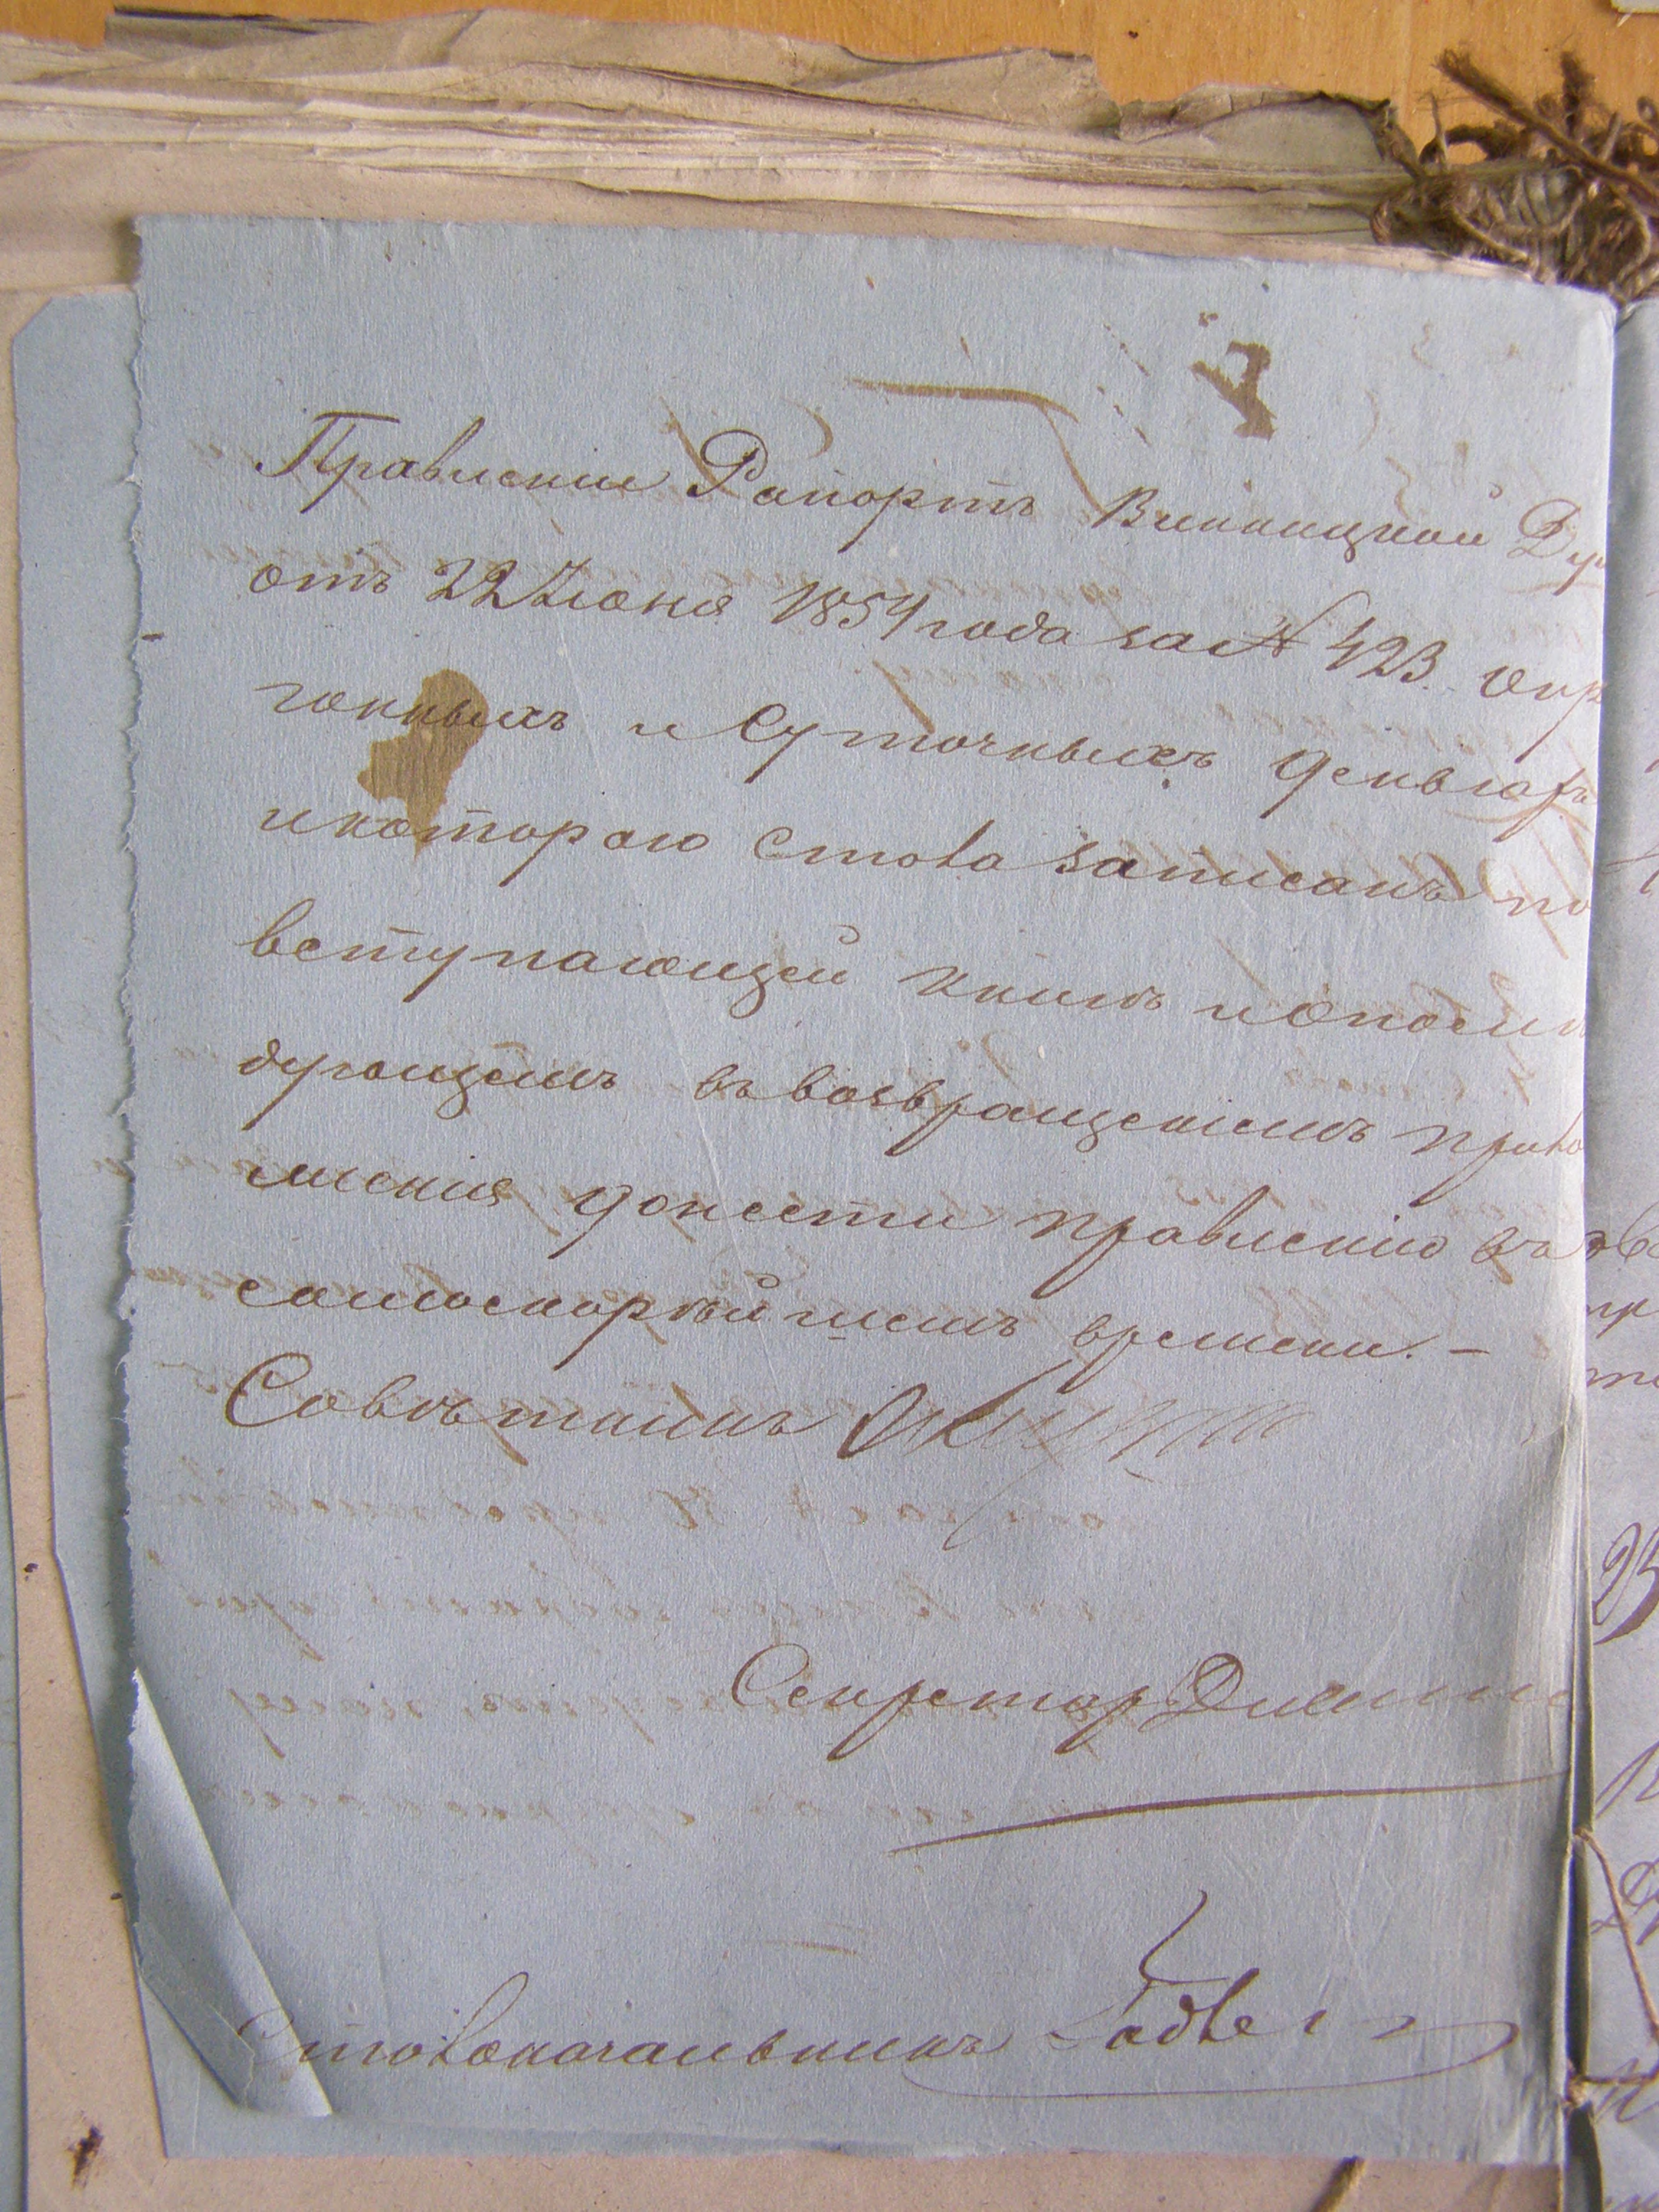 Правленіе Рапортъ Винницкой Ду
отъ 22 Июня 1854 года за № 423. о пр
гонныхъ и Суточныхъ деньгахъ
и котораго стола записанъ по
вступающей книгѣ и о посл
дующемъ съ возвращеніемъ прило
женія донести правленію въ
самоскорѣйшемъ времени. –
Совѣтникъ
Секретарь
Столоначальникъ